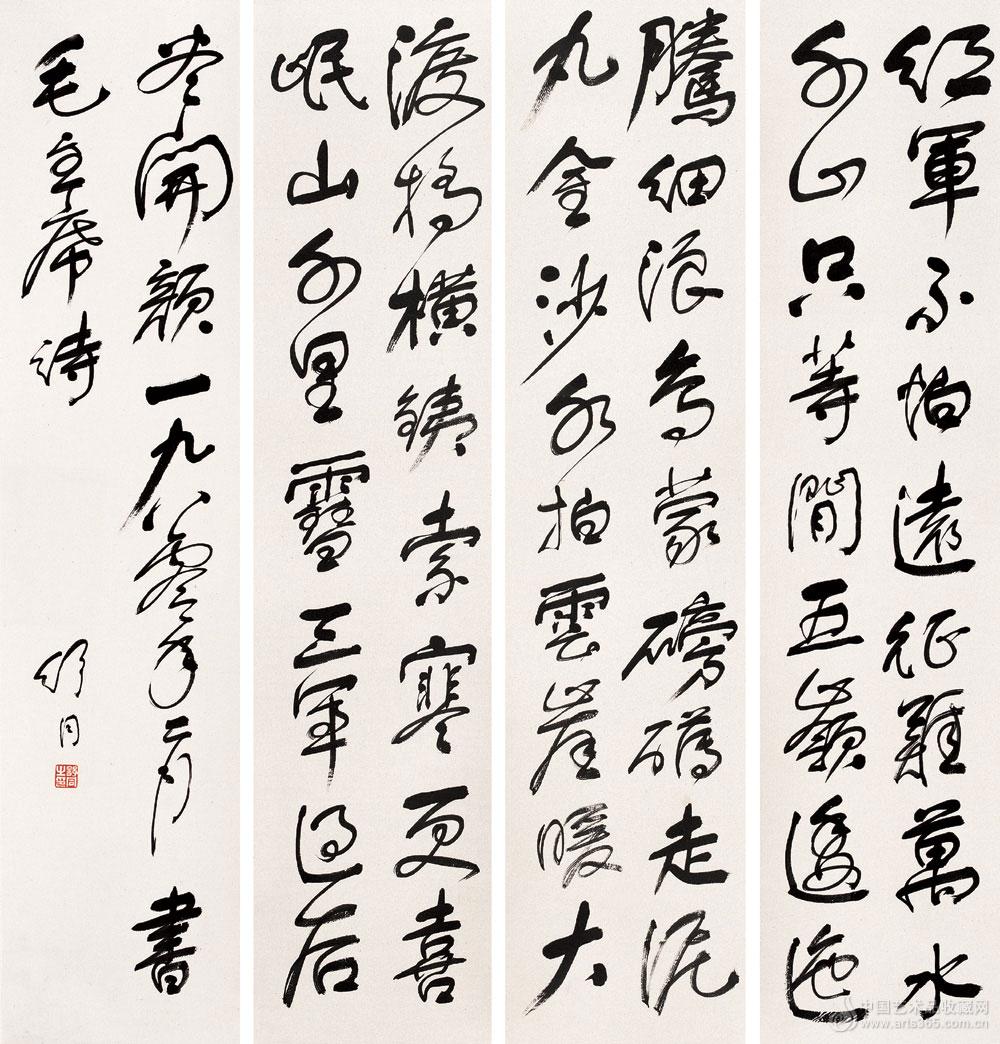 紅軍不怕遠征難萬水
千山只等間五嶺逶迤
騰細浪烏蒙磅礴走泥
丸金沙水拍雲崖暖大
渡橋橫鐵索寒更喜
岷山千里雪三軍過后
盡開顏一九八零年二月書
毛主席詩
舒同
舒同之印
中国艺术品收藏网
www.arts365.com.cn